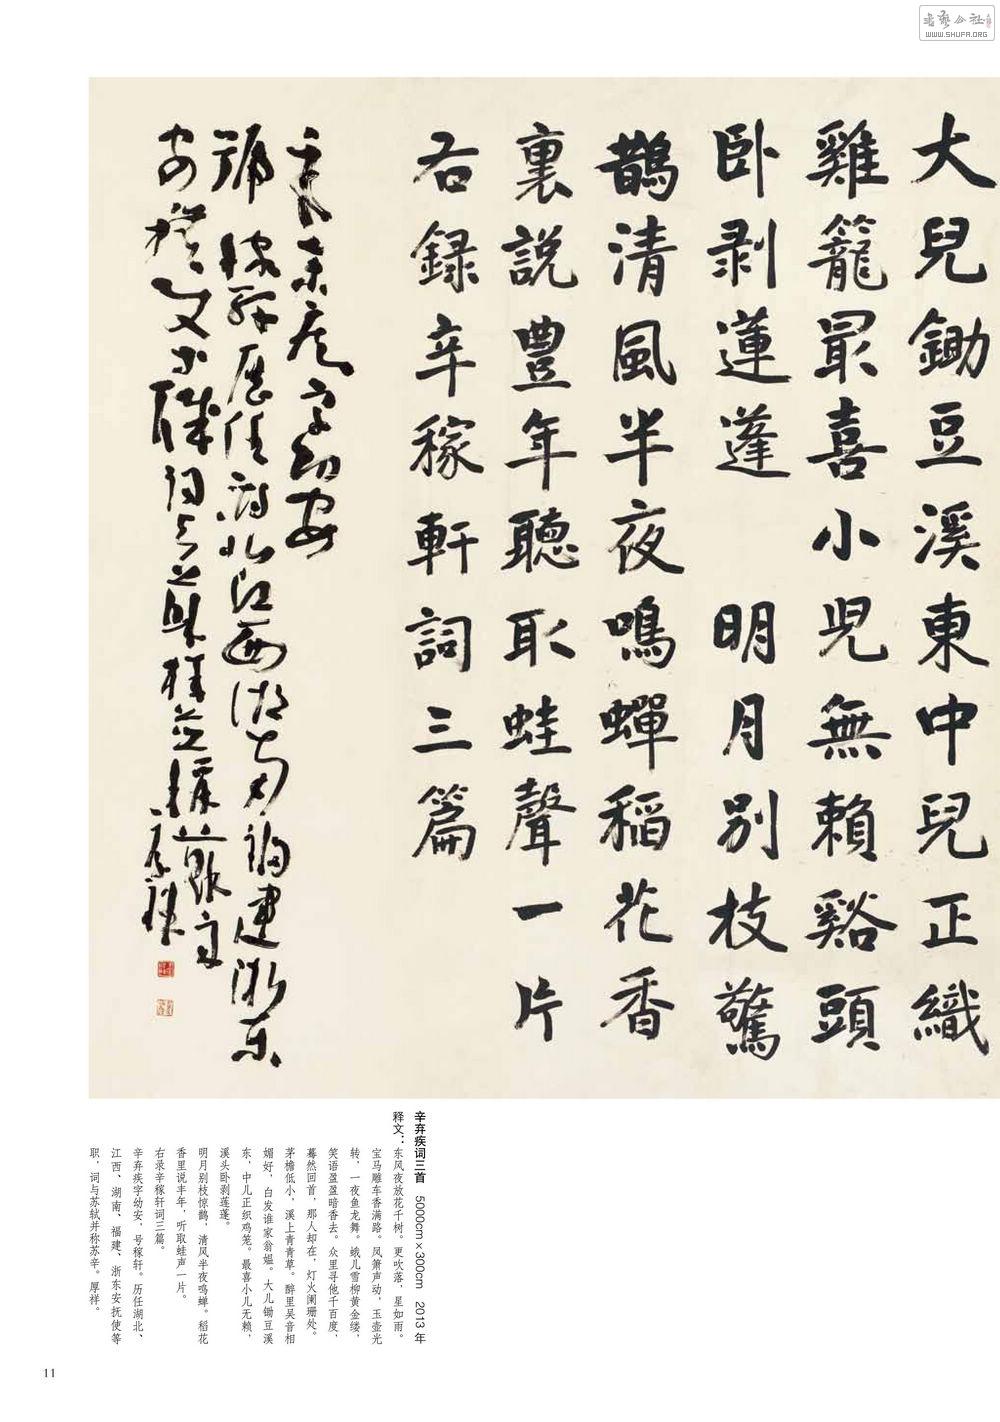 書藝公社
WWW.SHUFA.ORG
大兒鋤豆溪東中兒正織
雞籠最喜小兒無賴谿頭
卧剥蓮蓬 明月别枝驚
鵲清風半夜鳴蟬稻花香
裏説豐年聽取蛙聲一片
右録辛稼軒詞三篇
辛弃疾字幼安
號稼軒歷任湖北江西湖南福建浙东
安撫使等職词与苏轼并称苏辛
厚祥
辛弃疾词三首 5000cm×300cm 2013年
释文：东风夜放花千树。更吹落，星如雨。
宝马雕车香满路。凤箫声动，玉壶光
转，一夜鱼龙舞。蛾儿雪柳黄金缕，
笑语盈盈暗香去。众里寻他千百度，
蓦然回首，那人却在，灯火阑珊处。
茅檐低小，溪上青青草。醉里吴音相
媚好，白发谁家翁媪。大儿锄豆溪
东，中儿正织鸡笼。最喜小儿无赖，
溪头卧剥莲蓬。
明月别枝惊鹊，清风半夜鸣蝉。稻花
香里说丰年，听取蛙声一片。
右录辛稼轩词三篇。
辛弃疾字幼安，号稼轩。历任湖北、
江西、湖南、福建、浙东安抚使等
职，词与苏轼并称苏辛。厚祥。
11